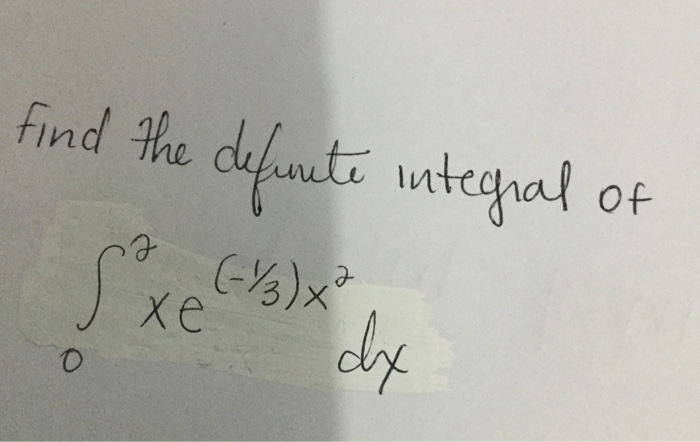 find the definite integral of
∫₀² xe^(-1/3)x² dx